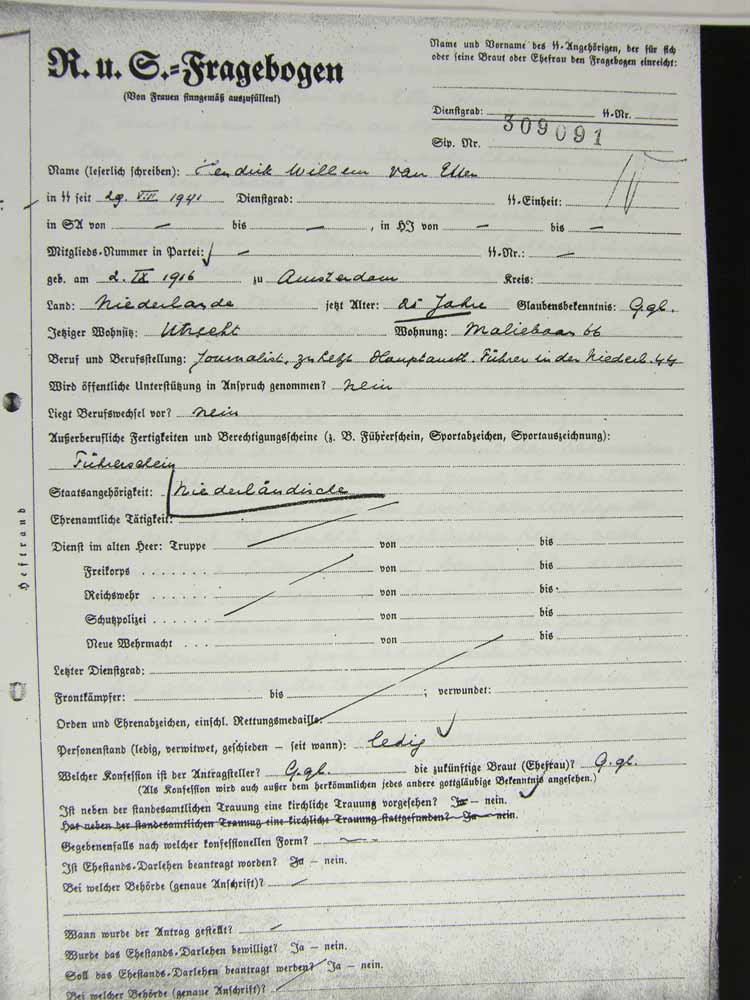 Name und Vorname des SS-Angehörigen, der für sich
oder seine Braut oder Ehefrau den Fragebogen einreicht:
R. u. S.-Fragebogen
(Von Frauen sinngemäß auszufüllen!)
Dienstgrad: SS-Nr.
Sip. Nr. 309091
Name (leserlich schreiben): Hendrik Willem van Etten
in SS seit 29. VIII. 1941 Dienstgrad: SS-Einheit:
in SA von — bis — , in HJ von — bis —
Mitglieds-Nummer in Partei: — SS-Nr.: —
geb. am 2. IX 1916 zu Amsterdam Kreis:
Land: Niederlande jetzt Alter: 25 Jahre Glaubensbekenntnis: G.gl.
Jetziger Wohnsitz: Utrecht Wohnung: Maliebaan 66
Beruf und Berufsstellung: Journalist, zuletzt Hauptamtl. Führer in der Niederl. SS
Wird öffentliche Unterstützung in Anspruch genommen? nein
Liegt Berufswechsel vor? nein
Außerberufliche Fertigkeiten und Berechtigungsscheine (z. B. Führerschein, Sportabzeichen, Sportauszeichnung):
Führerschein
Staatsangehörigkeit: Niederländische
Ehrenamtliche Tätigkeit:
Dienst im alten Heer: Truppe von bis
Freikorps von bis
Reichswehr von bis
Schutzpolizei von bis
Neue Wehrmacht von bis
Letzter Dienstgrad:
Frontkämpfer: bis ; verwundet:
Orden und Ehrenabzeichen, einschl. Rettungsmedaille:
Personenstand (ledig, verwitwet, geschieden — seit wann): ledig
Welcher Konfession ist der Antragsteller? G.gl. die zukünftige Braut (Ehefrau)? G.gl.
(Als Konfession wird auch außer dem herkömmlichen jedes andere gottgläubige Bekenntnis angesehen.)
Ist neben der standesamtlichen Trauung eine kirchliche Trauung vorgesehen? Ja — nein.
Hat neben der standesamtlichen Trauung eine kirchliche Trauung stattgefunden? Ja — nein.
Gegebenenfalls nach welcher konfessionellen Form? —
Ist Ehestands-Darlehen beantragt worden? Ja — nein.
Bei welcher Behörde (genaue Anschrift)?
Wann wurde der Antrag gestellt?
Wurde das Ehestands-Darlehen bewilligt? Ja — nein.
Soll das Ehestands-Darlehen beantragt werden? Ja — nein.
Bei welcher Behörde (genaue Anschrift)?
Heftrand